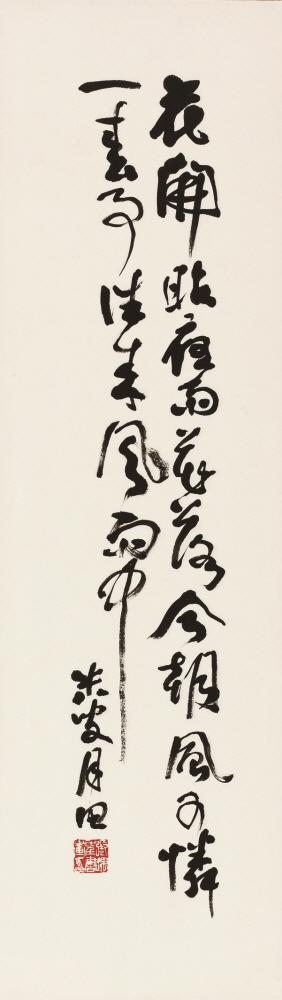 花開昨夜雨花落今朝風可憐
一春事往來風雨中
米叟月田